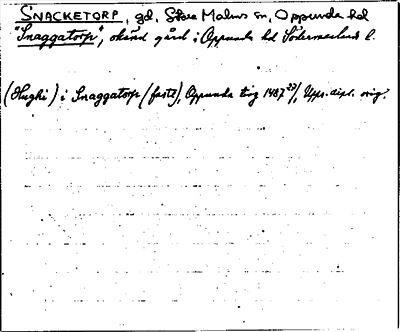 SNACKETORP, gd, Stora Malms sn, Oppunda hd
"Snaggatorp", okänd gård i Oppunda hd Södermanlands l.
(Hughi) i Snaggatorp (faste), Oppunda ting 1487 23/, Upps. dipl. orig.